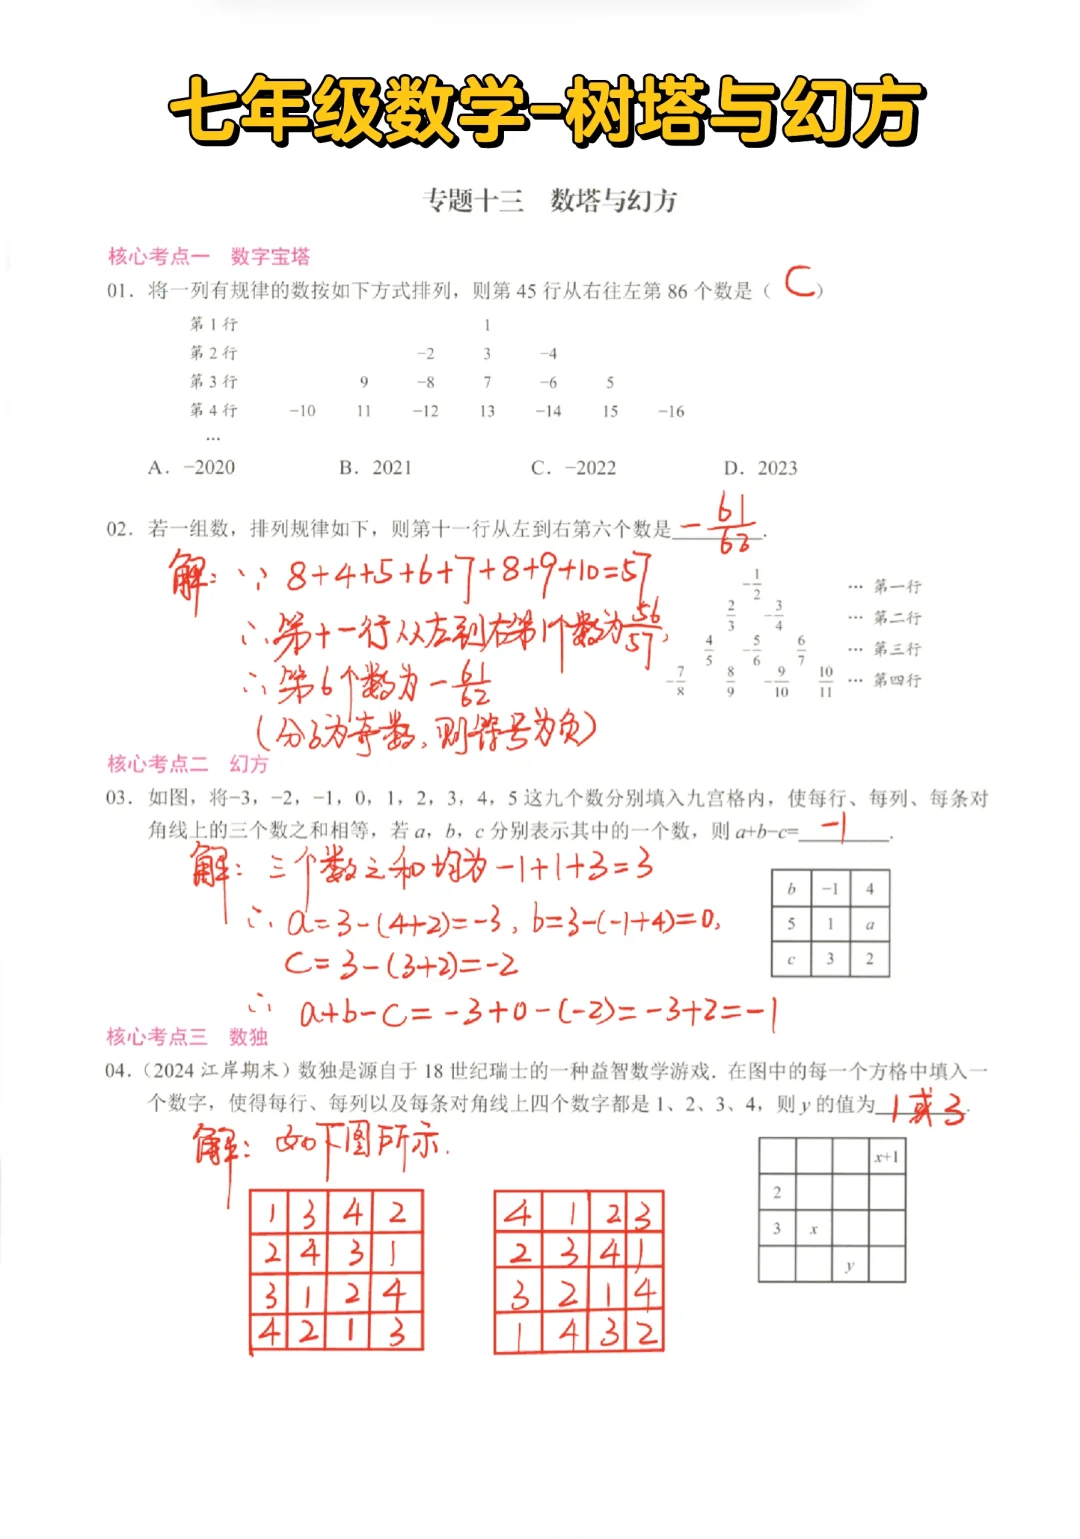 七年级数学-树塔与幻方
专题十三 数塔与幻方
核心考点一 数字宝塔
01. 将一列有规律的数按如下方式排列，则第 45 行从右往左第 86 个数是（ C ）
第 1 行 1
第 2 行 −2 3 −4
第 3 行 9 −8 7 −6 5
第 4 行 −10 11 −12 13 −14 15 −16
…
A. −2020 B. 2021 C. −2022 D. 2023
02. 若一组数，排列规律如下，则第十一行从左到右第六个数是 −61/62 .
解：∵ 8+4+5+6+7+8+9+10=57
∴第十一行从左到右第1个数为56/57，
∴第6个数为−61/62
(分子为奇数，则符号为负)
−1/2 … 第一行
2/3 −3/4 … 第二行
4/5 −5/6 6/7 … 第三行
−7/8 8/9 −9/10 10/11 … 第四行
核心考点二 幻方
03. 如图，将−3，−2，−1，0，1，2，3，4，5 这九个数分别填入九宫格内，使每行、每列、每条对
角线上的三个数之和相等，若 a，b，c 分别表示其中的一个数，则 a+b−c= −1 .
解：三个数之和均为−1+1+3=3
∴ a=3−(4+2)=−3，b=3−(−1+4)=0,
c=3−(3+2)=−2
∴ a+b−c=−3+0−(−2)=−3+2=−1
b −1 4
5 1 a
c 3 2
核心考点三 数独
04.（2024 江岸期末）数独是源自于 18 世纪瑞士的一种益智数学游戏．在图中的每一个方格中填入一
个数字，使得每行、每列以及每条对角线上四个数字都是 1、2、3、4，则 y 的值为 1或3 .
解：如下图所示.
x+1
2
3 x
y
1 3 4 2
2 4 3 1
3 1 2 4
4 2 1 3
4 1 2 3
2 3 4 1
3 2 1 4
1 4 3 2